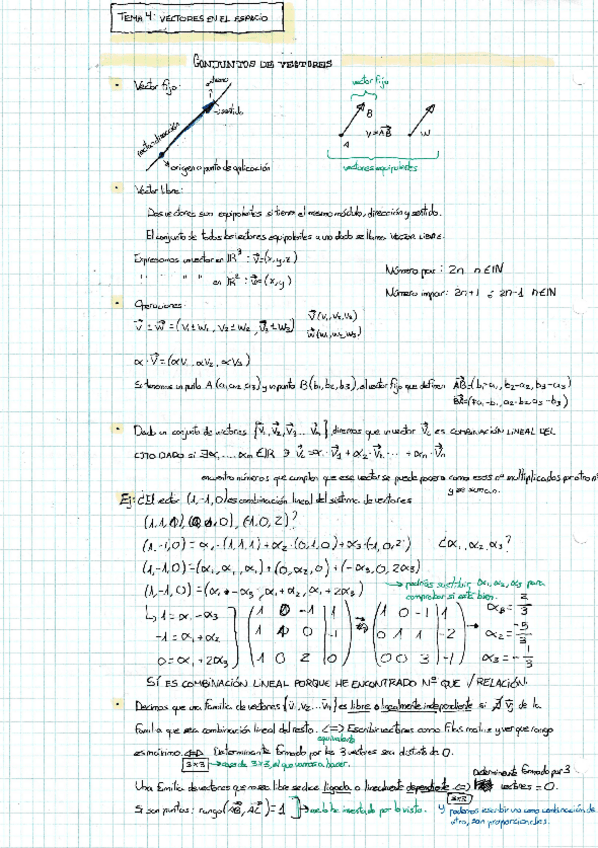 TEMA 4: VECTORES EN EL ESPACIO
CONJUNTOS DE VECTORES
Vector fijo:
sentido
recta dirección
origen o punto de aplicación
vector fijo
B
A
V=AB
W
vectores equipolentes
Vector libre:
Dos vectores son equipolentes si tienen el mismo módulo, dirección y sentido.
El conjunto de todos los vectores equipolentes a uno dado se llama VECTOR LIBRE.
Expresamos un vector en IR³ : v=(x,y,z)
" " " " en IR² : v=(x,y)
Número par: 2n n∈IN
Número impar: 2n+1 ó 2n-1 n∈IN
Operaciones:
V ± W = (V1±W1, V2±W2, V3±W3)
V(V1,V2,V3)
W(W1,W2,W3)
α·V=(αV1, αV2, αV3)
Si tenemos un punto A(a1,a2,a3) y un punto B(b1,b2,b3), el vector fijo que definen AB=(b1-a1, b2-a2, b3-a3)
BA=(a1-b1, a2-b2, a3-b3)
Dado un conjunto de vectores {V1,V2,V3...Vn}, diremos que un vector Vi es COMBINACIÓN LINEAL DEL
CJTO DADO si ∃α1...αn∈IR ∋ Vi=α1·V1+α2·V2...+αn·Vn
encuentro números que cumplen que ese vector se puede poner como esos nº multiplicados por otro nº
y se suman.
Ej: ¿El vector (1,-1,0) es combinación lineal del sistema de vectores
(1,1,1) (0,1,0), (-1,0,2)?
(1,-1,0)=α1·(1,1,1)+α2·(0,1,0)+α3·(-1,0,2) ¿α1,α2,α3?
(1,-1,0)=(α1,α1,α1)+(0,α2,0)+(-α3,0,2α3)
(1,-1,0)=(α1-α3, α1+α2, α1+2α3)
podrías sustituir α1,α2,α3 para
comprobar si está bien.
1=α1-α3
-1=α1+α2
0=α1+2α3
1 0 -1 | 1
1 1 0 | -1
1 0 2 | 0
1 0 -1 | 1
0 1 1 | -2
0 0 3 | -1
2/3
α2=-5/3
α3=-1/3
SÍ ES COMBINACIÓN LINEAL PORQUE HE ENCONTRADO Nº QUE √ RELACIÓN.
Decimos que una familia de vectores {V1,V2...Vn} es libre o linealmente independiente si ∄ Vj de la
familia que sea combinación lineal del resto. <=> Escribir vectores como filas matriz y ver que rango
equivalente
es máximo. <=> Determinante formado por los 3 vectores sea distinto de 0.
3x3 → caso de 3x3, el que vamos a hacer.
Una familia de vectores que no sea libre se dice ligada o linealmente dependiente <=> Determinante formado por 3 vectores = 0.
3x3
Si son puntos: rango(AB, AC)=1 → me lo he inventado por lo visto. Y podemos escribir uno como combinación de
otro, son proporcionales.